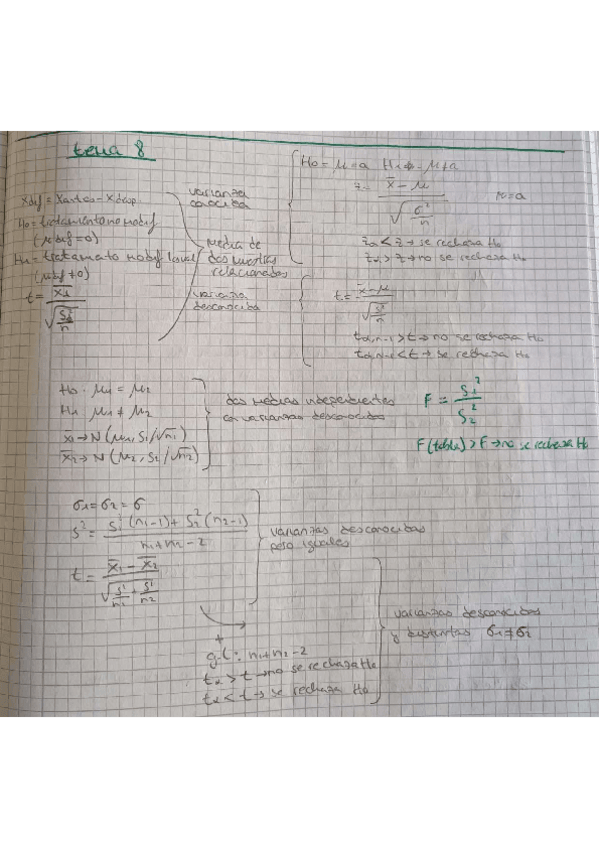 tema 8
Xdif = Xantes - Xdesp.
H0 = tratamiento no modif
(μdif = 0)
H1 = tratamiento modif
(μdif ≠ 0)
t = x̄d / √(Sd²/n)
varianza
conocida
media de
dos muestras
relacionadas
varianza
desconocida
H0 = μ = a H1 μ ≠ a
z = (x̄ - μ) / √(σ²/n) μ = a
zα < z → se rechaza H0
zα > z → no se rechaza H0
t = (x̄ - μ) / √(S²/n)
tα, n-1 > t → no se rechaza H0
tα, n-1 < t → se rechaza H0
H0 · μ1 = μ2
H1 μ1 ≠ μ2
x̄1 → N (μ1, S1/√n1)
x̄2 → N (μ2, S2/√n2)
dos medias independientes
con varianzas desconocidas
F = S1² / S2²
F (tabla) > F → no se rechaza H0
σ1 = σ2 = σ
S² = (S1² (n1-1) + S2² (n2-1)) / (n1 + n2 - 2)
t = (x̄1 - x̄2) / √(S²/n1 + S²/n2)
varianzas desconocidas
pero iguales
+
g.l: n1+n2-2
tα > t → no se rechaza H0
tα < t → se rechaza H0
varianzas desconocidas
y distintas σ1 ≠ σ2